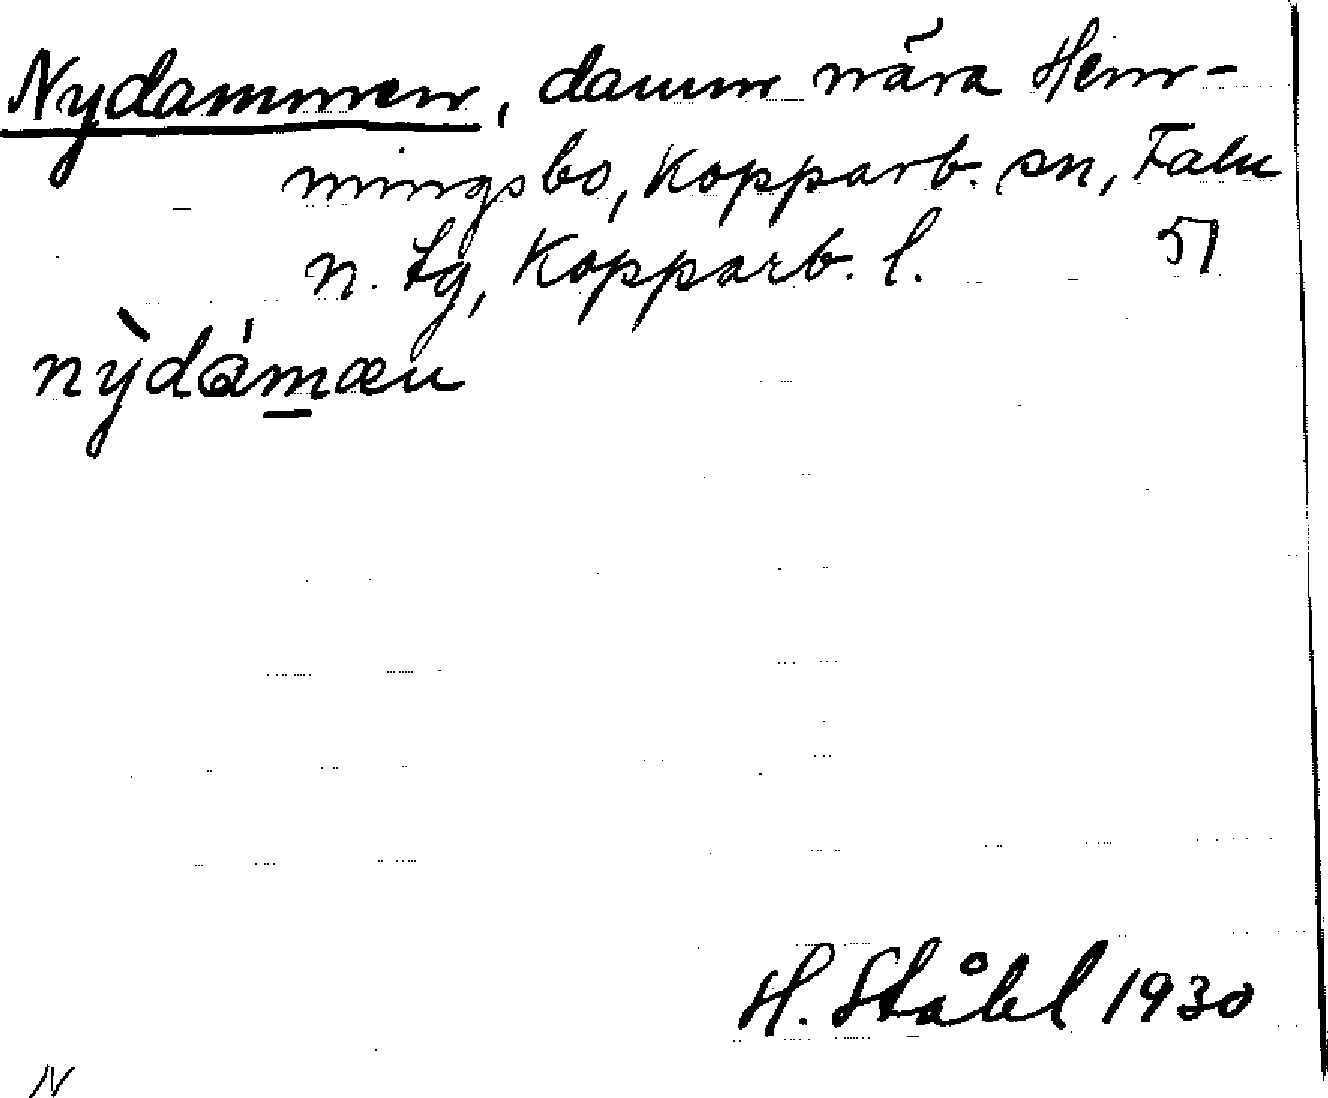 Nydammen, damm nära Hem-
mingsbo, Kopparb. sn, Falu
n. tg, Kopparb. l. 51
nỳdámæn
H. Ståhl 1930
N